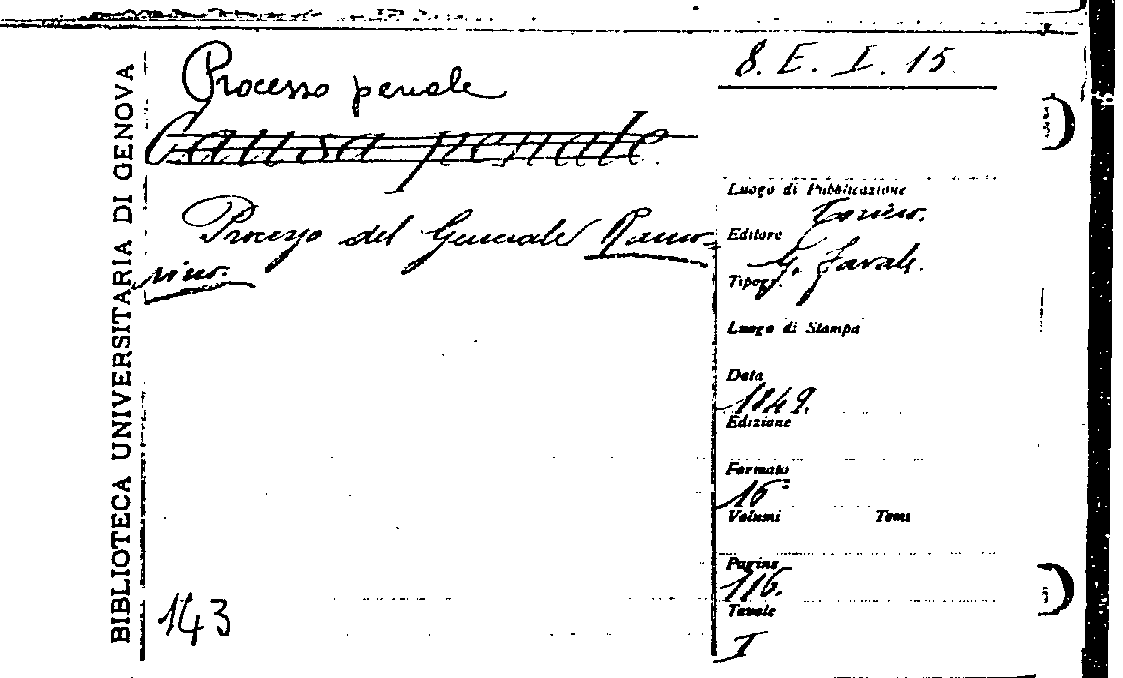 BIBLIOTECA UNIVERSITARIA DI GENOVA
8. E. I. 15
Processo penale
Causa penale
Processo del Generale Ramo-
rino.
143
Luogo di Pubblicazione
Torino.
Editore
G. Favale.
Tipogr.
Luogo di Stampa
Data
1849.
Edizione
Formato
16°
Volumi Tomi
Pagine
116.
Tavole
I